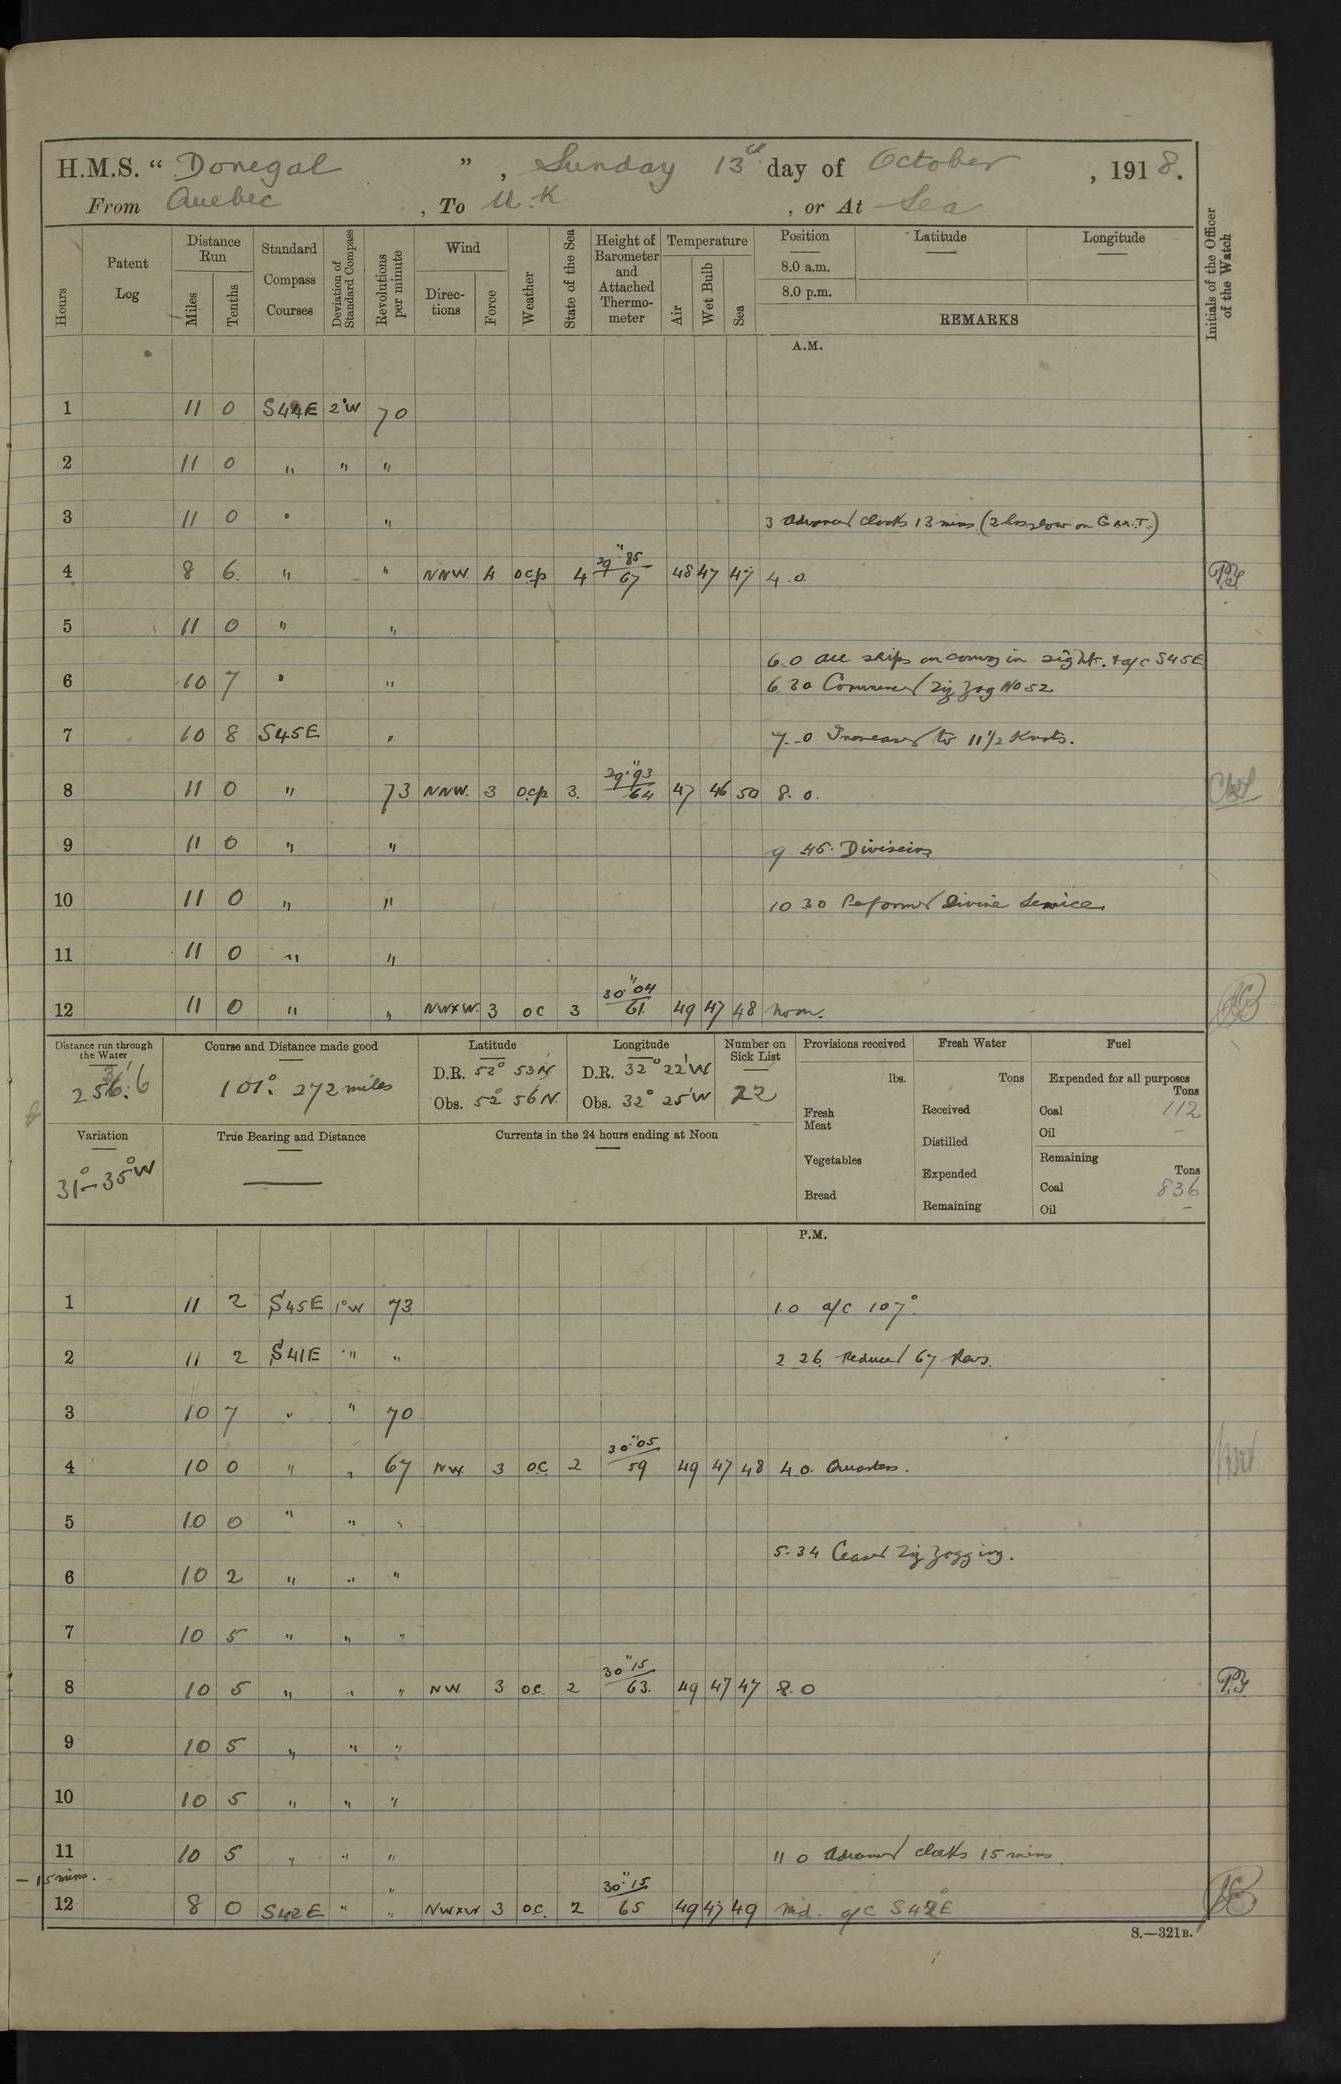 H.M.S. “ Donegal ” , Sunday 13th day of October , 1918.
From Quebec , To U.K. , or At Sea
Hours Patent Log Distance Run Miles Tenths Standard Compass Courses Deviation of Standard Compass Revolutions per minute Wind Directions Force Weather State of the Sea Height of Barometer and Attached Thermometer Temperature Air Wet Bulb Sea Position Latitude Longitude
8.0 a.m.
8.0 p.m.
REMARKS
Initials of the Officer of the Watch
A.M.
1 11 0 S44E 2°W 70
2 11 0 " " "
3 11 0 " " 3 Advanced clocks 13 mins. (2 hrs slow on G.M.T.)
4 8 6 " " NNW. 4 ocp 4 29"85/67 48 47 47 4.0. PY
5 11 0 " "
6.0 All ships on convoy in sight. + a/c S45E
6 10 7 " " 6.30 Commenced Zig Zag No 52
7 10 8 S45E " 7.0 Increased to 11 1/2 Knots.
8 11 0 " 73 NNW. 3 ocp 3. 29"93/64 47 46 50 8.0.
9 11 0 " " 9 45. Divisions
10 11 0 " " 10 30 Performed Divine Service.
11 11 0 " "
12 11 0 " " NWxW. 3 oc 3 30"04/61. 49 47 48 Noon.
Distance run through the Water Course and Distance made good Latitude Longitude Number on Sick List Provisions received Fresh Water Fuel
253.6 101° 272 miles D.R. 52° 53'N D.R. 32° 22'W 22 lbs. Tons Expended for all purposes Tons
Obs. 52° 56'N. Obs. 32° 25'W Fresh Meat Received Coal 112
Distilled Oil –
Variation True Bearing and Distance Currents in the 24 hours ending at Noon
31°–35°W Vegetables Expended Remaining Tons
Bread Remaining Coal 836
Oil –
P.M.
1 11 2 S45E 1°W 73 1.0 a/c 107°
2 11 2 S41E " " 2 26 Reduced 67 Revs.
3 10 7 " " 70
4 10 0 " " 67 NW 3 OC. 2 30"05/59 49 47 48 4.0. Quarters.
5 10 0 " " "
5.34 Ceased Zig Zagging.
6 10 2 " " "
7 10 5 " " "
8 10 5 " " " NW. 3 oc. 2 30"15/63. 49 47 47 8.0 PY
9 10 5 " " "
10 10 5 " " "
11 10 5 " " " 11 0 Advanced clocks 15 mins
– 15 mins.
12 8 0 S42E " " NWxW 3 oc. 2 30"15/65 49 47 49 Mid. a/c S42°E
S.—321B.